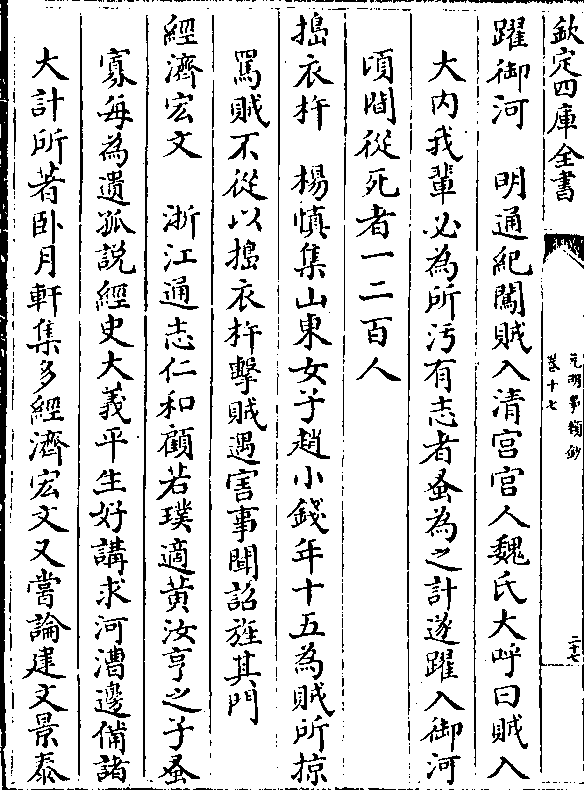 欽定四庫全書
元明事類鈔
卷十七
二十七
躍御河　明通紀闖賊入清宮宮人魏氏大呼曰賊入
大内我輩必為所污有志者蚤為之計遂躍入御河
頃間從死者一二百人
搗衣杵　楊慎集山東女子趙小錢年十五為賊所掠
罵賊不從以搗衣杵擊賊遇害事聞詔旌其門
經濟宏文　浙江通志仁和顧若璞適黄汝亨之子蚤
寡每為遺孤説經史大義平生好講求河漕邊備諸
大計所著卧月軒集多經濟宏文又嘗論建文景泰